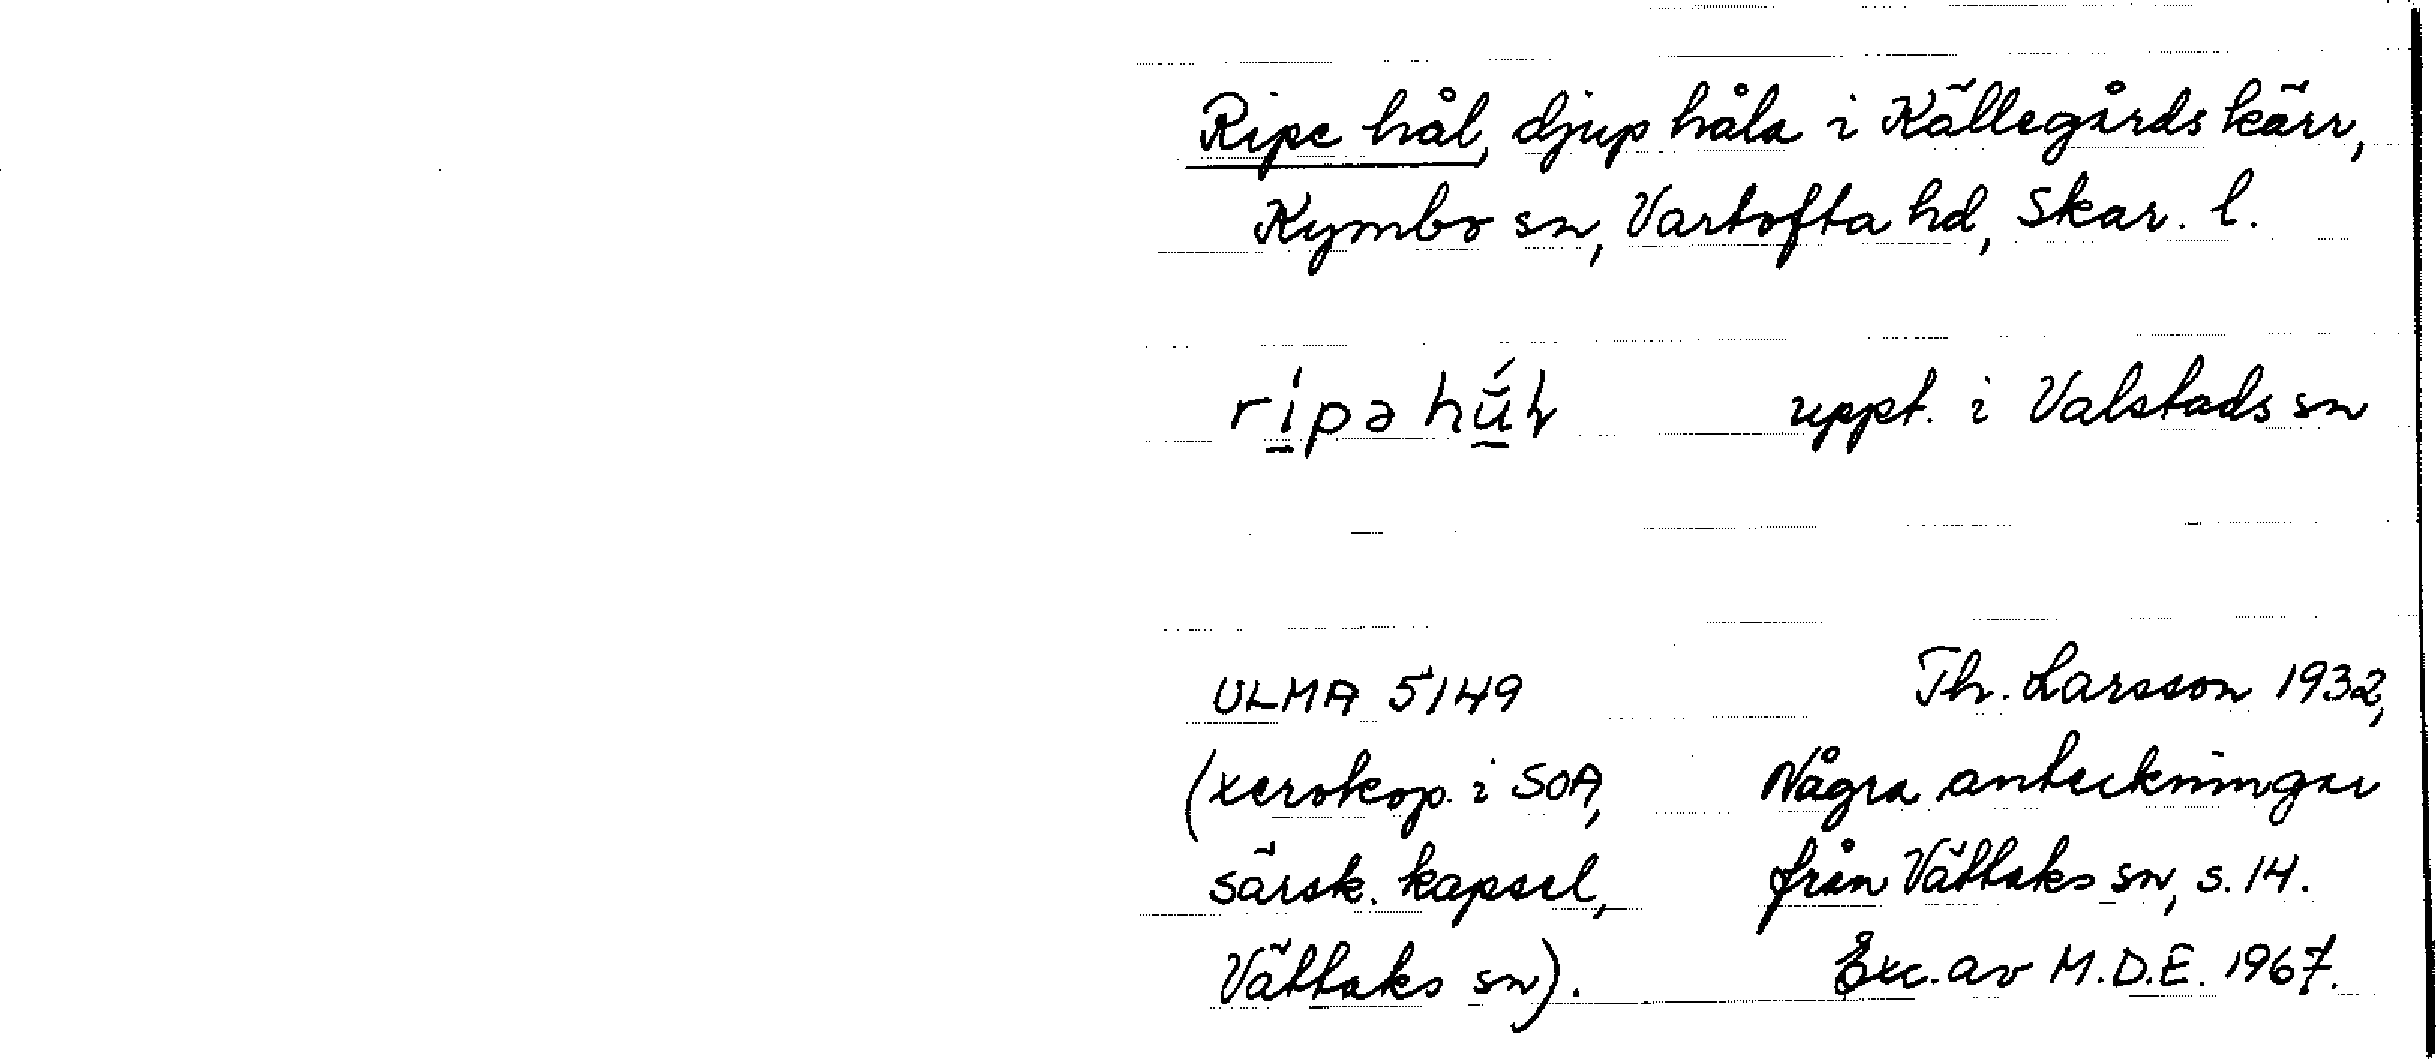 Ripe hål, djup håla i Källegårds kärr,
Kymbo sn, Vartofta hd, Skar. l.
uppt. i Valstads sn
ULMA 5149
Th. Larsson 1932,
(xerokop. i SOA,
Några anteckningar
särsk. kapsel,
från Vättaks sn, s. 14.
Vättaks sn).
Exc. av M.D.E. 1967.